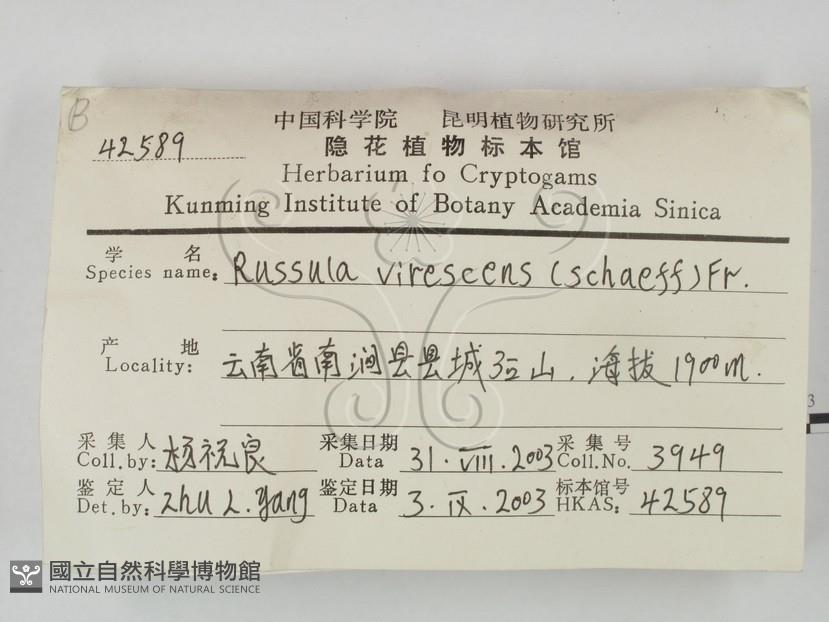 B
中国科学院 昆明植物研究所
42589
隐花植物标本馆
Herbarium fo Cryptogams
Kunming Institute of Botany Academia Sinica
学 名
Species name: Russula virescens (schaeff) Fr.
产 地
Locality: 云南省南涧县县城后山.海拔1900m.
采集人 杨祝良 采集日期 31.VIII.2003 采集号 3949
Coll.by: Data Coll.No.
鉴定人 Zhu L. Yang 鉴定日期 3.IX.2003 标本馆号 42589
Det.by: Data HKAS:
3
國立自然科學博物館
NATIONAL MUSEUM OF NATURAL SCIENCE